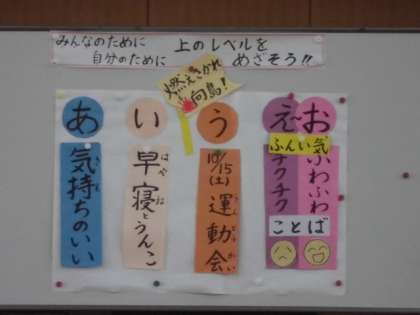 みんなのために 上のレベルを
自分のために めざそう!!
燃えさかれ
向島!
あ
気持ちのいい
い
早寝とうんこ
はや ね
う
10/15(土)
運動会
うん どう かい
え〜お
ふんい気
チクチク
ふわふわ
ことば